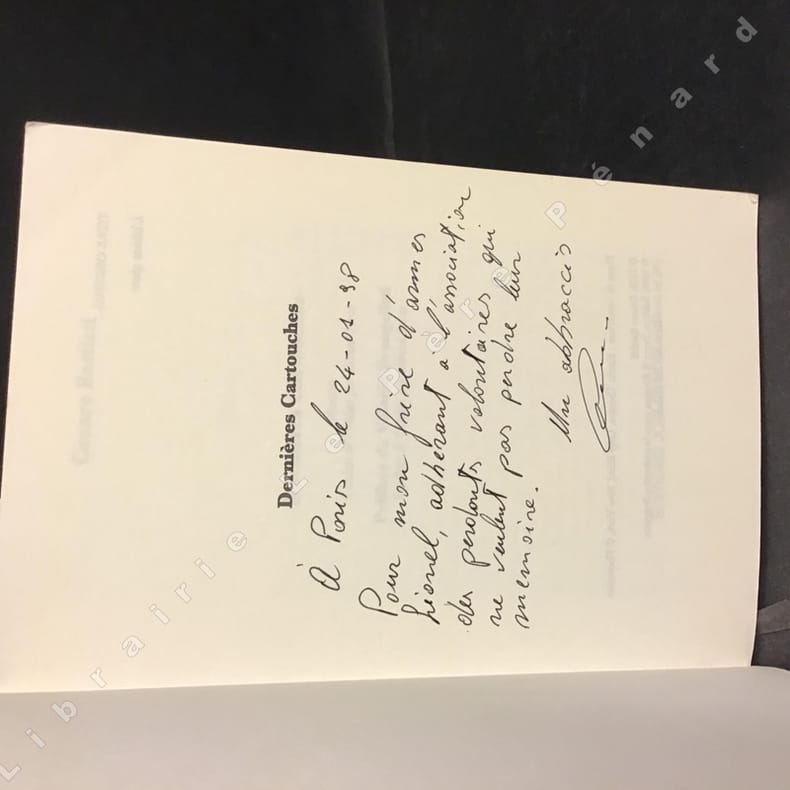 Dernières Cartouches
À Paris le 24-01-98
Pour mon frère d'armes
Lionel, adhérant à l'association
des perdants volontaires qui
ne veulent pas perdre leur
memoire.
Un abbraccio
Librairie Le Père Pénard